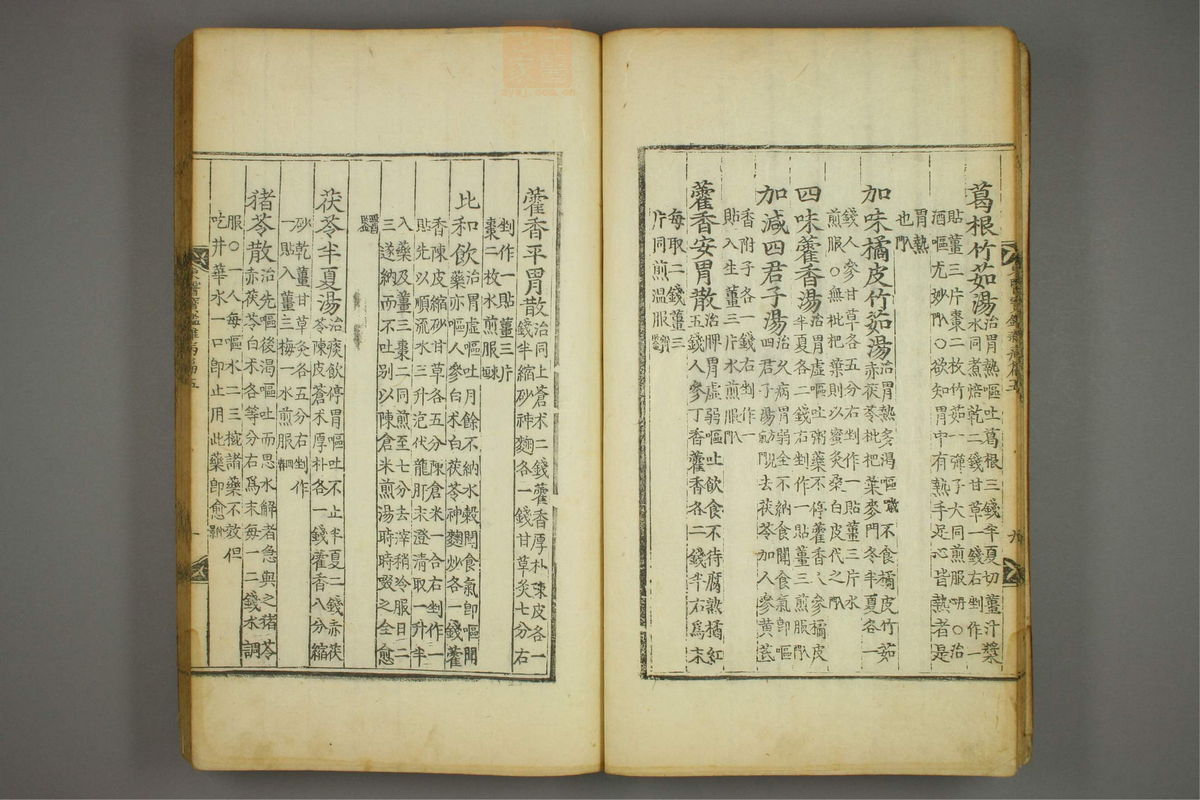 葛根竹茹湯治胃熱嘔吐葛根三錢半夏切薑汁漿
水同煮焙乾二錢甘草一錢右剉作一
貼薑三片棗二枚竹茹一彈子大同煎服 ○治
酒嘔尤妙 ○欲知胃中有熱手足心皆熱者是
胃熱
也
加味橘皮竹茹湯治胃熱多渴嘔噦不食橘皮竹茹
赤茯苓枇杷葉麥門冬半夏各一
錢人參甘草各五分右剉作一貼薑三片水
煎服○無枇杷葉則以蜜灸桑白皮代之
四味藿香湯治胃虛嘔吐粥藥不停藿香人參橘皮
半夏各二錢右剉作一貼薑三煎服
加減四君子湯治久病胃弱全不納食聞食氣卽嘔
四君子湯 去茯苓加人參黃芪
香附子各一錢右剉作一
貼入生薑三片水煎服
藿香安胃散治脾胃虛弱嘔吐飮食不待腐熟橘紅
五錢人參丁香藿香各二錢半右爲末
每取二錢薑三
片同煎溫服
藿香平胃散治同上蒼朮二錢藿香厚朴陳皮各一
錢半縮砂神麴各一錢甘草灸七分右
剉作一貼薑三片
棗二枚水煎服
比和飮治胃虛嘔吐月餘不納水穀聞食氣卽嘔聞
藥亦嘔人參白朮白茯苓神麴炒各一錢藿
香陳皮縮砂甘草各五分陳倉米一合右剉作一
貼先以順流水三升泡伏龍肝末澄淸取一升半
入藥及薑三棗二同煎至七分去滓稍冷服日二
三遂納而不吐別以陳倉米煎湯時時啜之全愈
茯苓半夏湯治痰飮停胃嘔吐不止半夏二錢赤茯
苓陳皮蒼朮厚朴各一錢藿香八分縮
砂乾薑甘草灸各五分右剉作
一貼入薑三梅一水煎服
猪苓散治先嘔後渴嘔吐而思水解者急與之猪苓
赤茯苓白朮各等分右爲末每一二錢水調
服○一人每嘔水二三椀諸藥不效但
吃井華水一口卽止用此藥卽愈